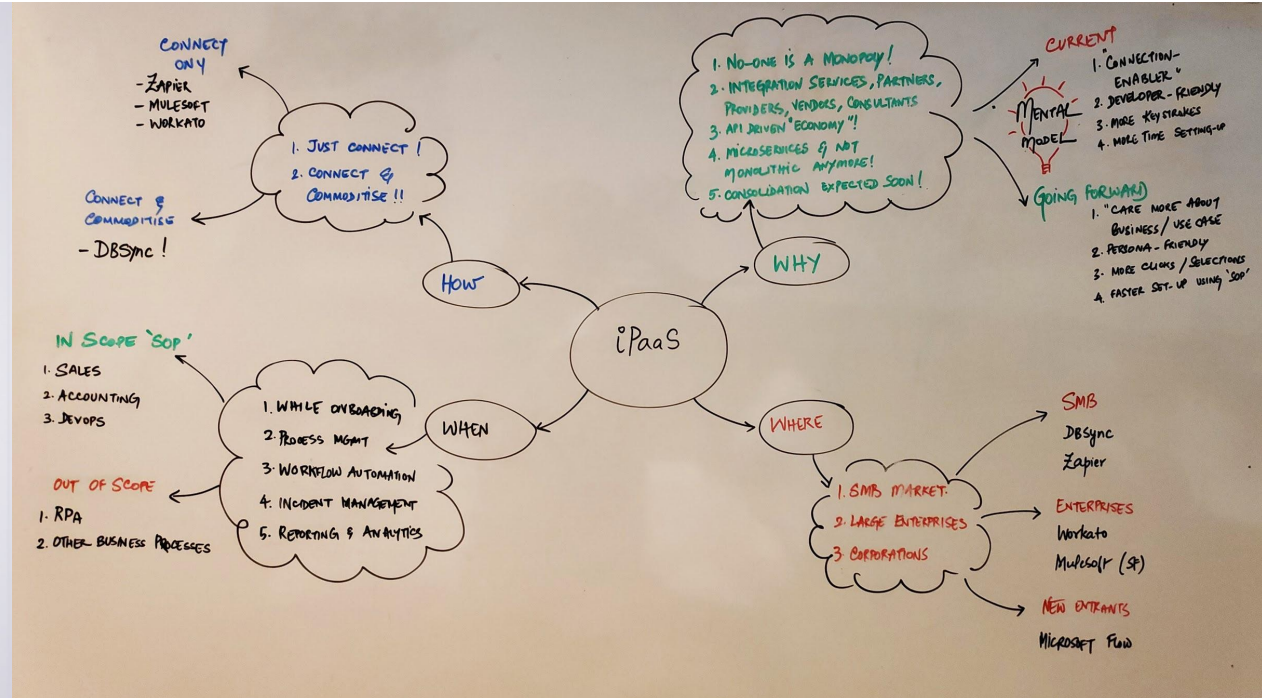 CONNECT
ONY
- ZAPIER
- MULESOFT
- WORKATO
1. JUST CONNECT !
2. CONNECT &
COMMODITISE !!
CONNECT &
COMMODITISE
- DBSync !
HOW
1. NO-ONE IS A MONOPOLY!
2. INTEGRATION SERVICES, PARTNERS,
PROVIDERS, VENDORS, CONSULTANTS
3. API DRIVEN "ECONOMY"!
4. MICROSERVICES & NOT
MONOLITHIC ANYMORE!
5. CONSOLIDATION EXPECTED SOON!
WHY
CURRENT
1. "CONNECTION-
ENABLER"
2. DEVELOPER-FRIENDLY
3. MORE KEYSTROKES
4. MORE TIME SETTING-UP
MENTAL
MODEL
GOING FORWARD
1. "CARE MORE ABOUT
BUSINESS / USE CASE
2. PERSONA-FRIENDLY
3. MORE CLICKS / SELECTIONS
4. FASTER SET-UP USING 'SOP'
iPaaS
IN SCOPE 'SOP'
1. SALES
2. ACCOUNTING
3. DEVOPS
OUT OF SCOPE
1. RPA
2. OTHER BUSINESS PROCESSES
1. WHILE ONBOARDING
2. PROCESS MGMT
3. WORKFLOW AUTOMATION
4. INCIDENT MANAGEMENT
5. REPORTING & ANALYTICS
WHEN
WHERE
1. SMB MARKET.
2. LARGE ENTERPRISES
3. CORPORATIONS
SMB
DBSync
Zapier
ENTERPRISES
Workato
Mulesoft (SF)
NEW ENTRANTS
MICROSOFT FLOW